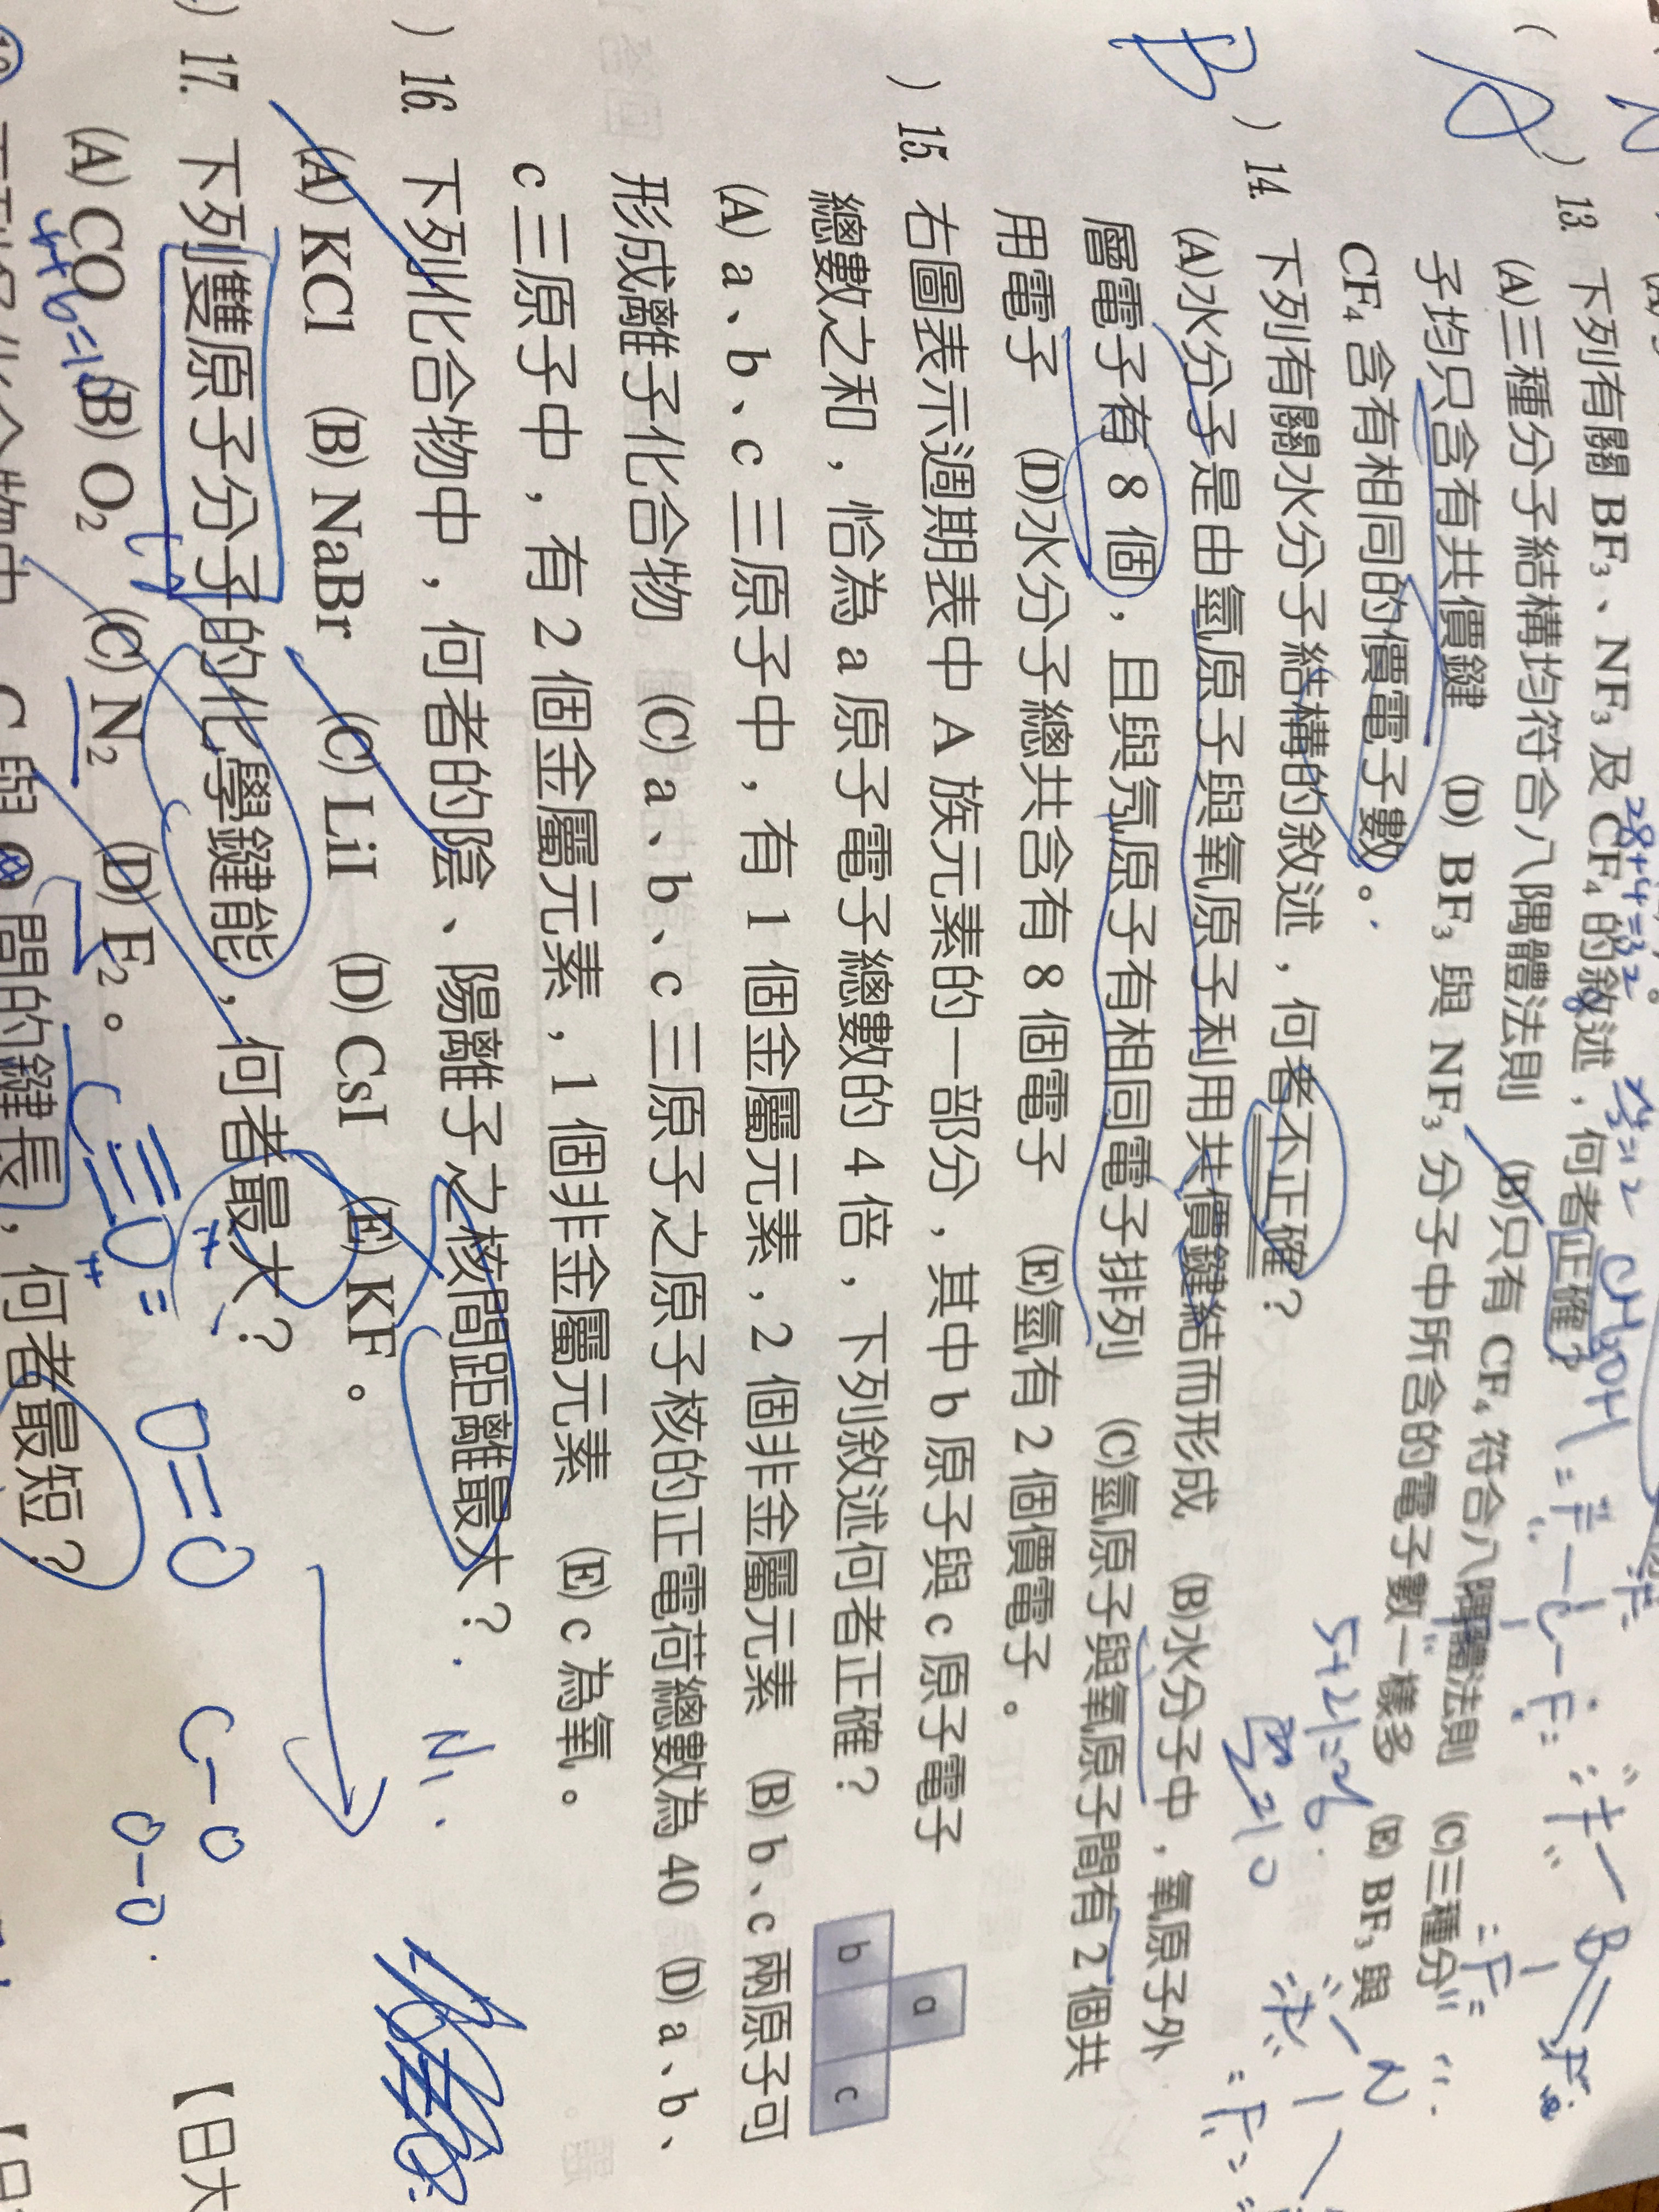 13. 下列有關 BF₃、NF₃ 及 CF₄ 的敘述，何者正確？
(A)三種分子結構均符合八隅體法則 (B)只有 CF₄ 符合八隅體法則 (C)三種分
子均只含有共價鍵 (D) BF₃ 與 NF₃ 分子中所含的電子數一樣多 (E) BF₃ 與
CF₄ 含有相同的價電子數。
B
) 14. 下列有關水分子結構的敘述，何者不正確？
(A)水分子是由氫原子與氧原子利用共價鍵結而形成 (B)水分子中，氧原子外
層電子有 8 個，且與氖原子有相同電子排列 (C)氫原子與氧原子間有 2 個共
用電子 (D)水分子總共含有 8 個電子 (E)氫有 2 個價電子。
) 15. 右圖表示週期表中 A 族元素的一部分，其中 b 原子與 c 原子電子
總數之和，恰為 a 原子電子總數的 4 倍，下列敘述何者正確？
(A) a、b、c 三原子中，有 1 個金屬元素，2 個非金屬元素 (B) b、c 兩原子可
形成離子化合物 (C) a、b、c 三原子之原子核的正電荷總數為 40 (D) a、b、
c 三原子中，有 2 個金屬元素，1 個非金屬元素 (E) c 為氧。
a
b
c
) 16. 下列化合物中，何者的陰、陽離子之核間距離最大？
(A) KCl (B) NaBr (C) LiI (D) CsI (E) KF。
) 17. 下列雙原子分子的化學鍵能，何者最大？
【日大
(A) CO (B) O₂ (C) N₂ (D) F₂。
4+6=10
C≡O
O=O
C-O
O-O
28+4=32
CH₃OH
5+21=26
間的鍵長，何者最短？